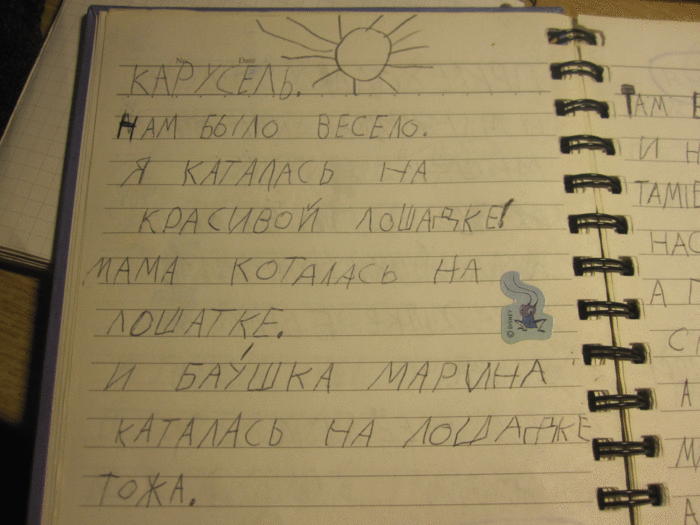 No. Date
КАРУСЕЛЬ.
НАМ БЫЛО ВЕСЕЛО.
Я КАТАЛАСЬ НА
КРАСИВОЙ ЛОШАДКЕ!
МАМА КОТАЛАСЬ НА
ЛОШАТКЕ.
И БАУШКА МАРИНА
КАТАЛАСЬ НА ЛОШАДЖЕ
ТОЖА.
© DISNEY
ТАМ
И Н
НАС
А
А